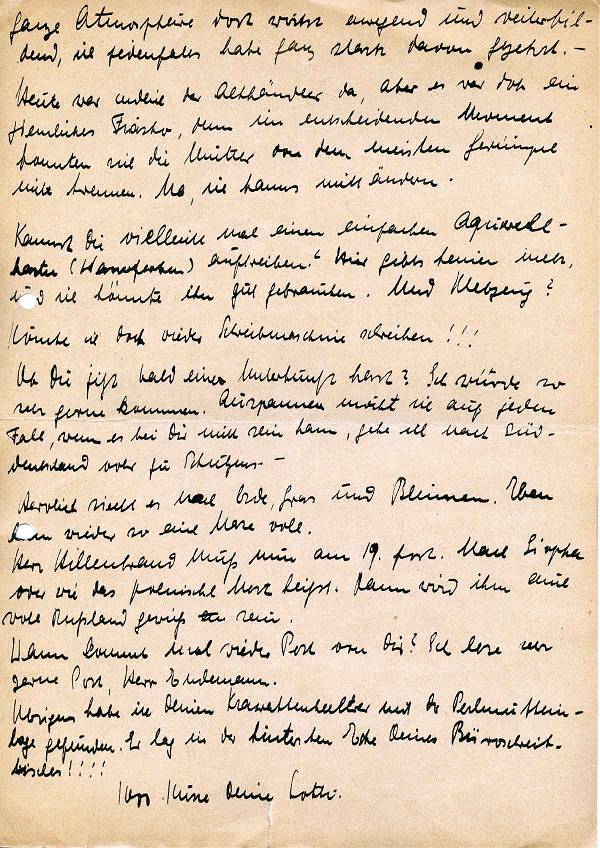 ganze Atmosphäre dort wirkt anregend und weiterbil-
dend, ich jedenfalls habe ganz stark davon gezehrt. –
Heute war der Althändler da, aber es war doch ein
ziemliches Fiasko, denn im entscheidenden Moment
konnten sich die Mütter von dem meisten Gerümpel
nicht trennen. Na, ich kanns nicht ändern.
Kannst Du vielleicht mal einen einfachen Aquarell-
kasten (Wasserfarben) auftreiben? Hier gibts keinen mehr,
und ich könnte ihn gut gebrauchen. Und Klebzeug?
Könnte ich doch wieder Schreibmaschine schreiben!!!
Ob Du jetzt bald eine Unterkunft hast? Ich würde so
sehr gerne kommen. Ausspannen möcht ich auf jeden
Fall, wenn es bei Dir nicht sein kann, gehe ich nach Süd-
deutschland oder zu –
Herrlich riecht es nach Erde, Gras und Blumen. Eben
wieder so eine Nase voll.
Herr Hillenbrand muß nun am 19. fort. Nach
oder wie das polnische Nest heißt. Dann wird ihm
Rußland gewiß sein.
Wann kommt mal wieder Post von Dir? Ich lese sehr
gerne Post, Herr Endemann.
Übrigens habe ich Deinen Krawattenhalter mit der Perlmuttein-
lage gefunden. Er lag in der hintersten Ecke Deines Büroschreib-
tisches!!!!
Küsse Deine Lotti.